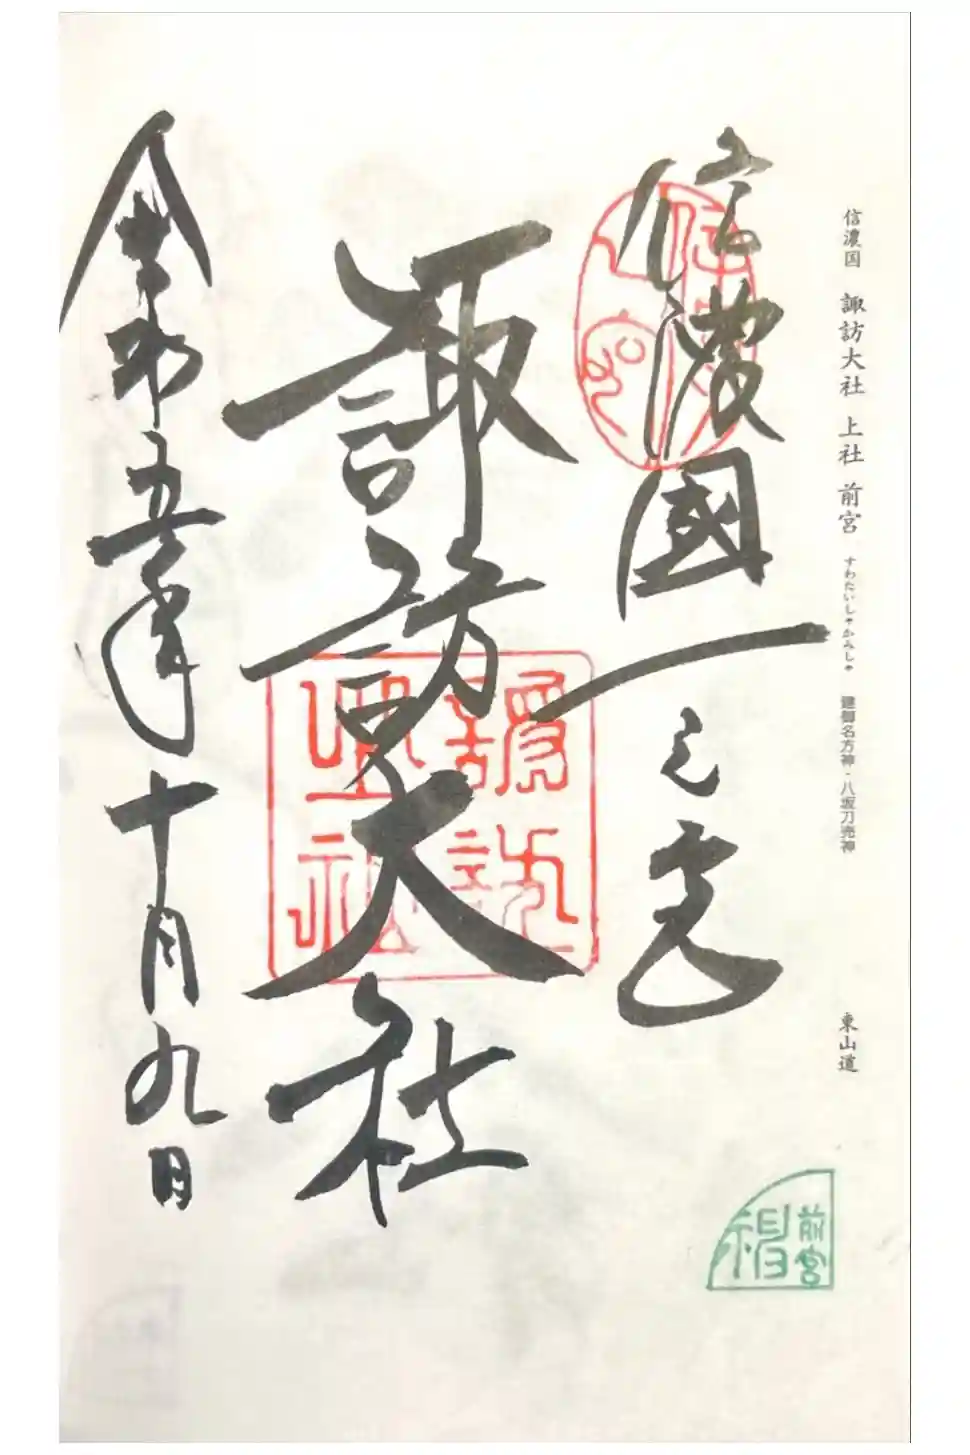 信濃国 諏訪大社 上社 前宮 すわたいしゃかみしゃ 建御名方神・八坂刀売神 東山道
信濃國一之宮
諏訪大社
令和五年十月九日
諏訪
大社
前宮